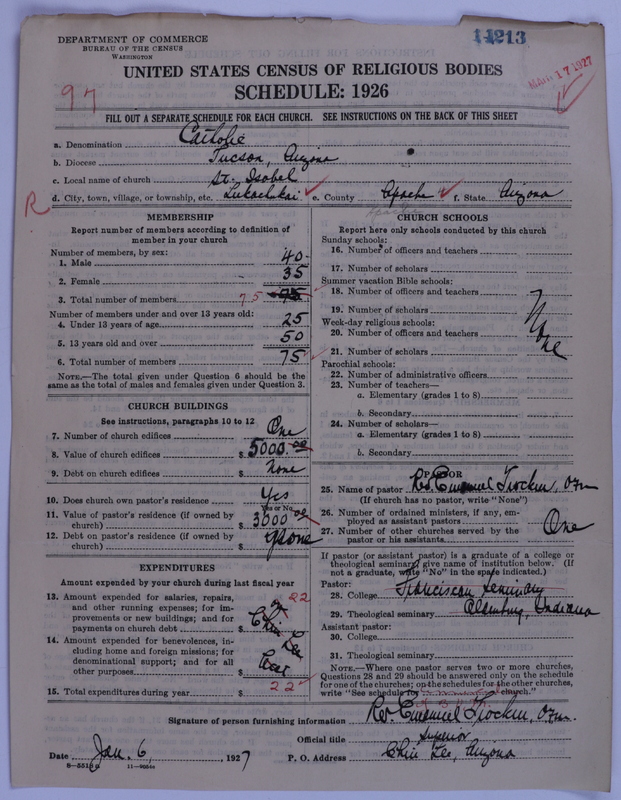 DEPARTMENT OF COMMERCE
BUREAU OF THE CENSUS
WASHINGTON
14213
MAR 17 1927
UNITED STATES CENSUS OF RELIGIOUS BODIES
SCHEDULE: 1926
97
FILL OUT A SEPARATE SCHEDULE FOR EACH CHURCH. SEE INSTRUCTIONS ON THE BACK OF THIS SHEET
a. Denomination Catholic
b. Diocese Tucson, Arizona
c. Local name of church St. Isabel
d. City, town, village, or township, etc. Lukachukai e. County Apache f. State Arizona
R
Apache
MEMBERSHIP
Report number of members according to definition of
member in your church
Number of members, by sex:
1. Male 40
2. Female 35
3. Total number of members 75 75
Number of members under and over 13 years old:
4. Under 13 years of age 25
5. 13 years old and over 50
6. Total number of members 75
NOTE.—The total given under Question 6 should be
same as the total of males and females given under Question 3.
CHURCH BUILDINGS
See instructions, paragraphs 10 to 12
7. Number of church edifices One
8. Value of church edifices $ 5000.00
9. Debt on church edifices $ None
10. Does church own pastor's residence Yes
Yes or No
11. Value of pastor's residence (if owned by
church) $ 3000 00
12. Debt on pastor's residence (if owned by
church) $ None
EXPENDITURES
Amount expended by your church during last fiscal year
13. Amount expended for salaries, repairs, 22
and other running expenses; for im-
provements or new buildings; and for
payments on church debt $
14. Amount expended for benevolences, in-
cluding home and foreign missions; for
denominational support; and for all
other purposes $
Chin Lee
15. Total expenditures during year $ 22
CHURCH SCHOOLS
Report here only schools conducted by this church
Sunday schools:
16. Number of officers and teachers
17. Number of scholars
Summer vacation Bible schools:
18. Number of officers and teachers
19. Number of scholars
Week-day religious schools:
20. Number of officers and teachers
None
21. Number of scholars
Parochial schools:
22. Number of administrative officers
23. Number of teachers—
a. Elementary (grades 1 to 8)
b. Secondary
24. Number of scholars—
a. Elementary (grades 1 to 8)
b. Secondary
PASTOR
25. Name of pastor Rev. Emanuel Trockur, Ofm
(If church has no pastor, write "None")
26. Number of ordained ministers, if any, em-
ployed as assistant pastors
27. Number of other churches served by the
pastor or his assistants One
If pastor (or assistant pastor) is a graduate of a college or
theological seminary, give name of institution below. (If
not a graduate, write "No" in the space indicated.)
Pastor:
28. College Franciscan Seminary
29. Theological seminary Oldenburg, Indiana
Assistant pastor:
30. College
31. Theological seminary
NOTE.—Where one pastor serves two or more churches,
Questions 28 and 29 should be answered only on the schedule
for one of the churches; on the schedules for the other churches,
write "See schedule for church."
Signature of person furnishing information Rev Emanuel Trockur, Ofm.
Official title Superior
Date Jan. 6, 1927 P. O. Address Chin Lee, Arizona